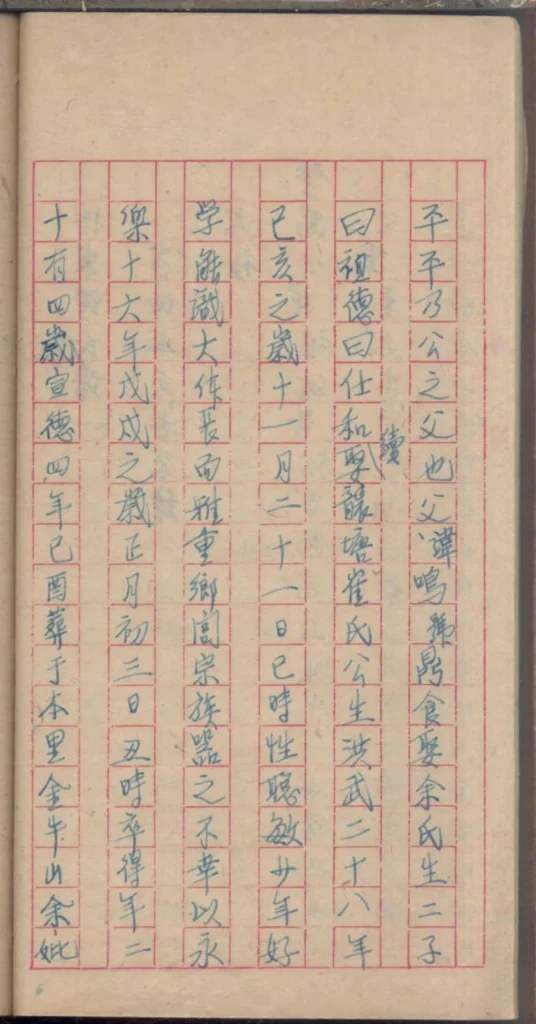 平平乃公之父也父諱鳴號鼎食娶余氏生二子
曰祖德曰仕和續娶龍塘崔氏公生洪武二十八年
己亥之歲十一月二十一日巳時性聰敏少年好
学能識大体長而雅重鄉閭宗族器之不幸以永
樂十六年戊戌之歲正月初三日丑時卒得年二
十有四歲宣德四年己酉葬于本里金牛山余妣